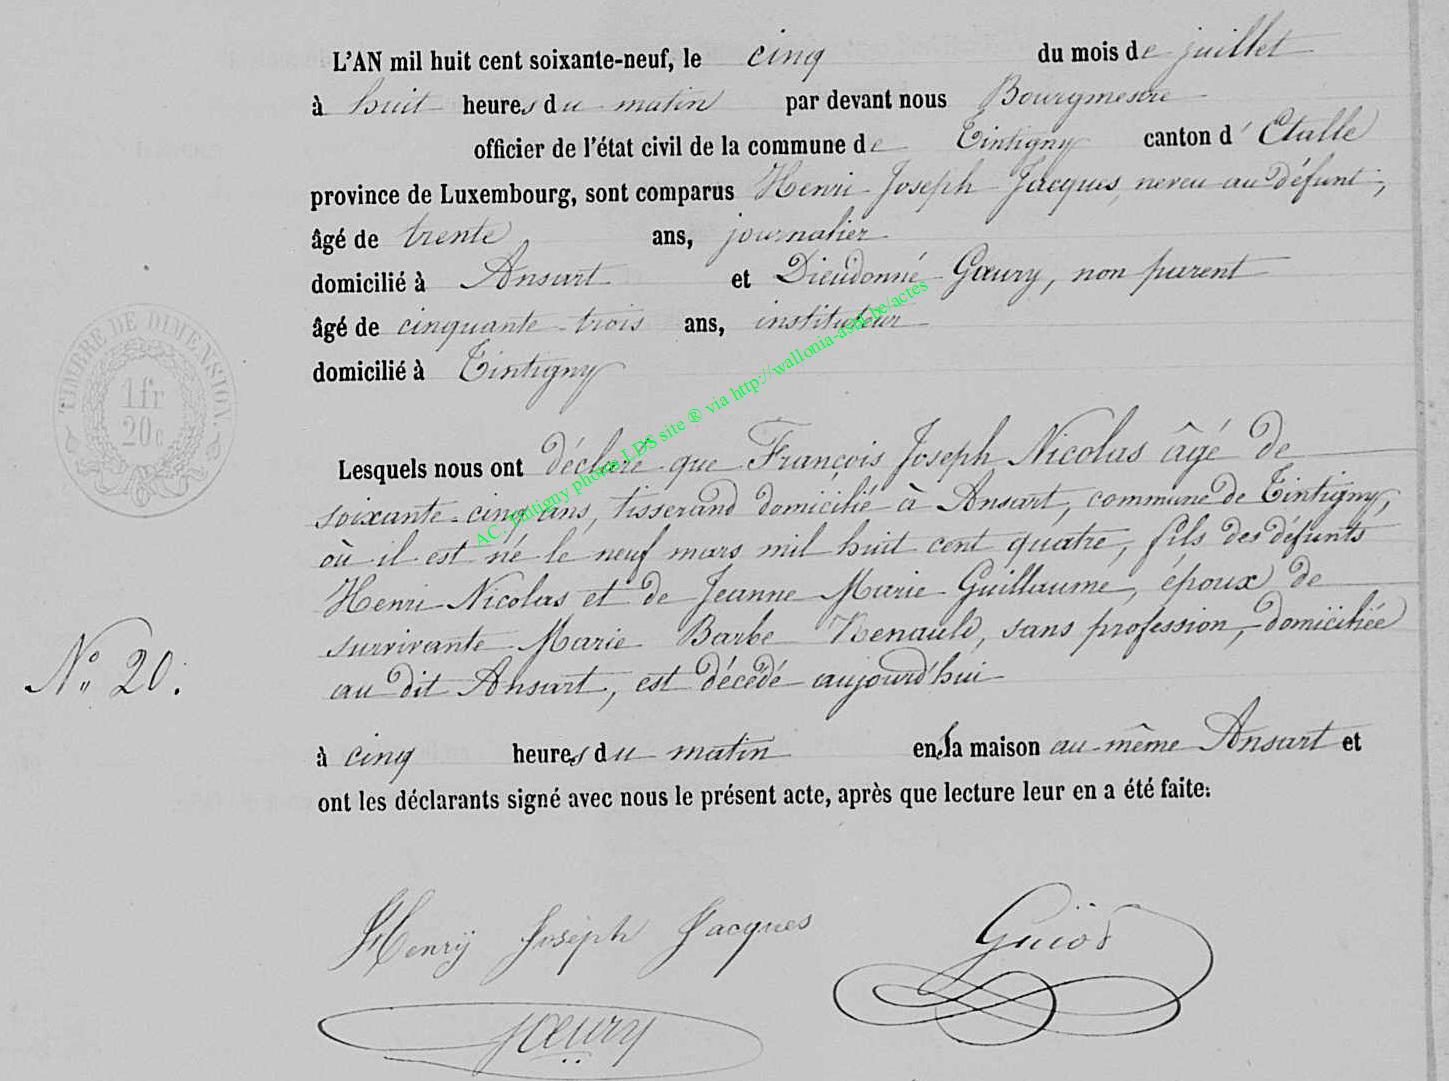 L'AN mil huit cent soixante-neuf, le cinq du mois de juillet
à huit heures du matin par devant nous Bourgmestre
officier de l'état civil de la commune de Tintigny canton d'Etalle
province de Luxembourg, sont comparus Henri Joseph Jacques, neveu au défunt,
âgé de trente ans, journalier
domicilié à Ansart et Dieudonné Gœury, non parent
âgé de cinquante-trois ans, instituteur
domicilié à Tintigny
Lesquels nous ont déclaré que François Joseph Nicolas âgé de
soixante-cinq ans, tisserand domicilié à Ansart, commune de Tintigny,
où il est né le neuf mars mil huit cent quatre, fils des défunts
Henri Nicolas et de Jeanne Marie Guillaume, époux de
survivante Marie Barbe Renauld, sans profession, domiciliée
au dit Ansart, est décédé aujourd'hui
à cinq heures du matin en sa maison au même Ansart et
ont les déclarants signé avec nous le présent acte, après que lecture leur en a été faite.
N° 20.
TIMBRE DE DIMENSION.
1 fr
20 c
Henrÿ Joséph Jacques
Gœury
AC. Tintigny photos LDS site ® via http://wallonia-asbl.be/actes